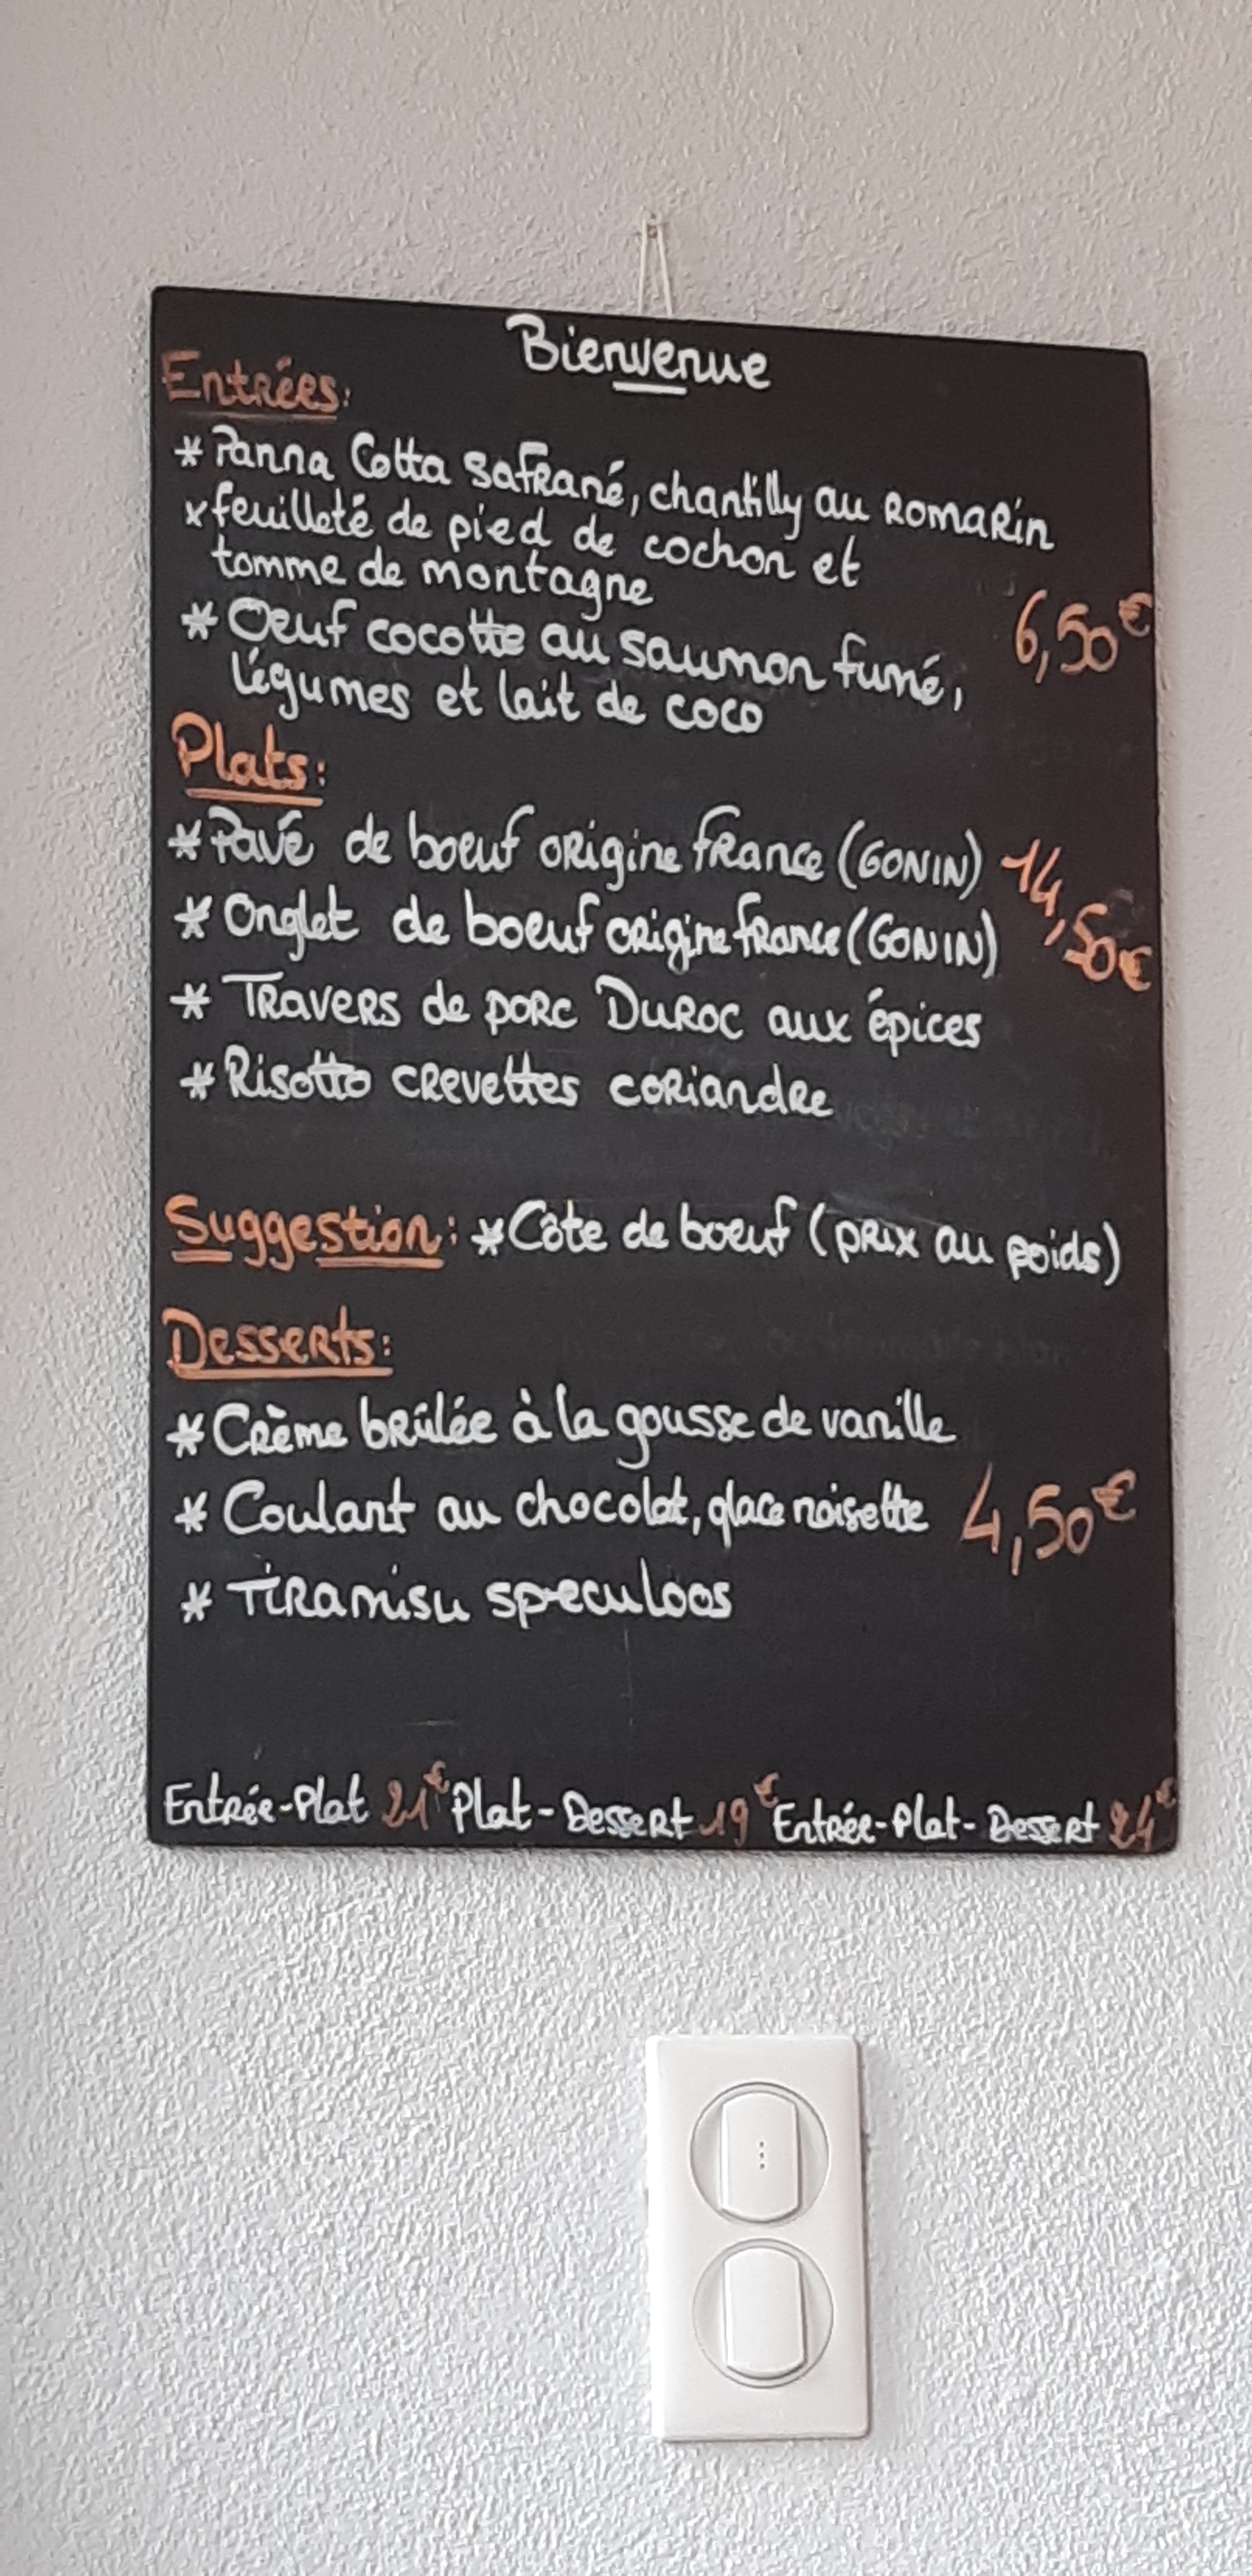 Bienvenue
Entrées:
* Panna Cotta Safrané, chantilly au Romarin
* feuilleté de pied de cochon et
tomme de montagne
6,50€
* Oeuf cocotte au saumon fumé,
légumes et lait de coco
Plats:
* Pavé de boeuf origine France (GONIN) 14,50€
* Onglet de boeuf origine France (GONIN)
* Travers de porc Duroc aux épices
* Risotto crevettes coriandre
Suggestion: * Côte de boeuf (prix au poids)
Desserts:
* Crème brûlée à la gousse de vanille
* Coulant au chocolat, glace noisette 4,50€
* Tiramisu speculoos
Entrée-Plat 21€ Plat-Dessert 19€ Entrée-Plat-Dessert 24€